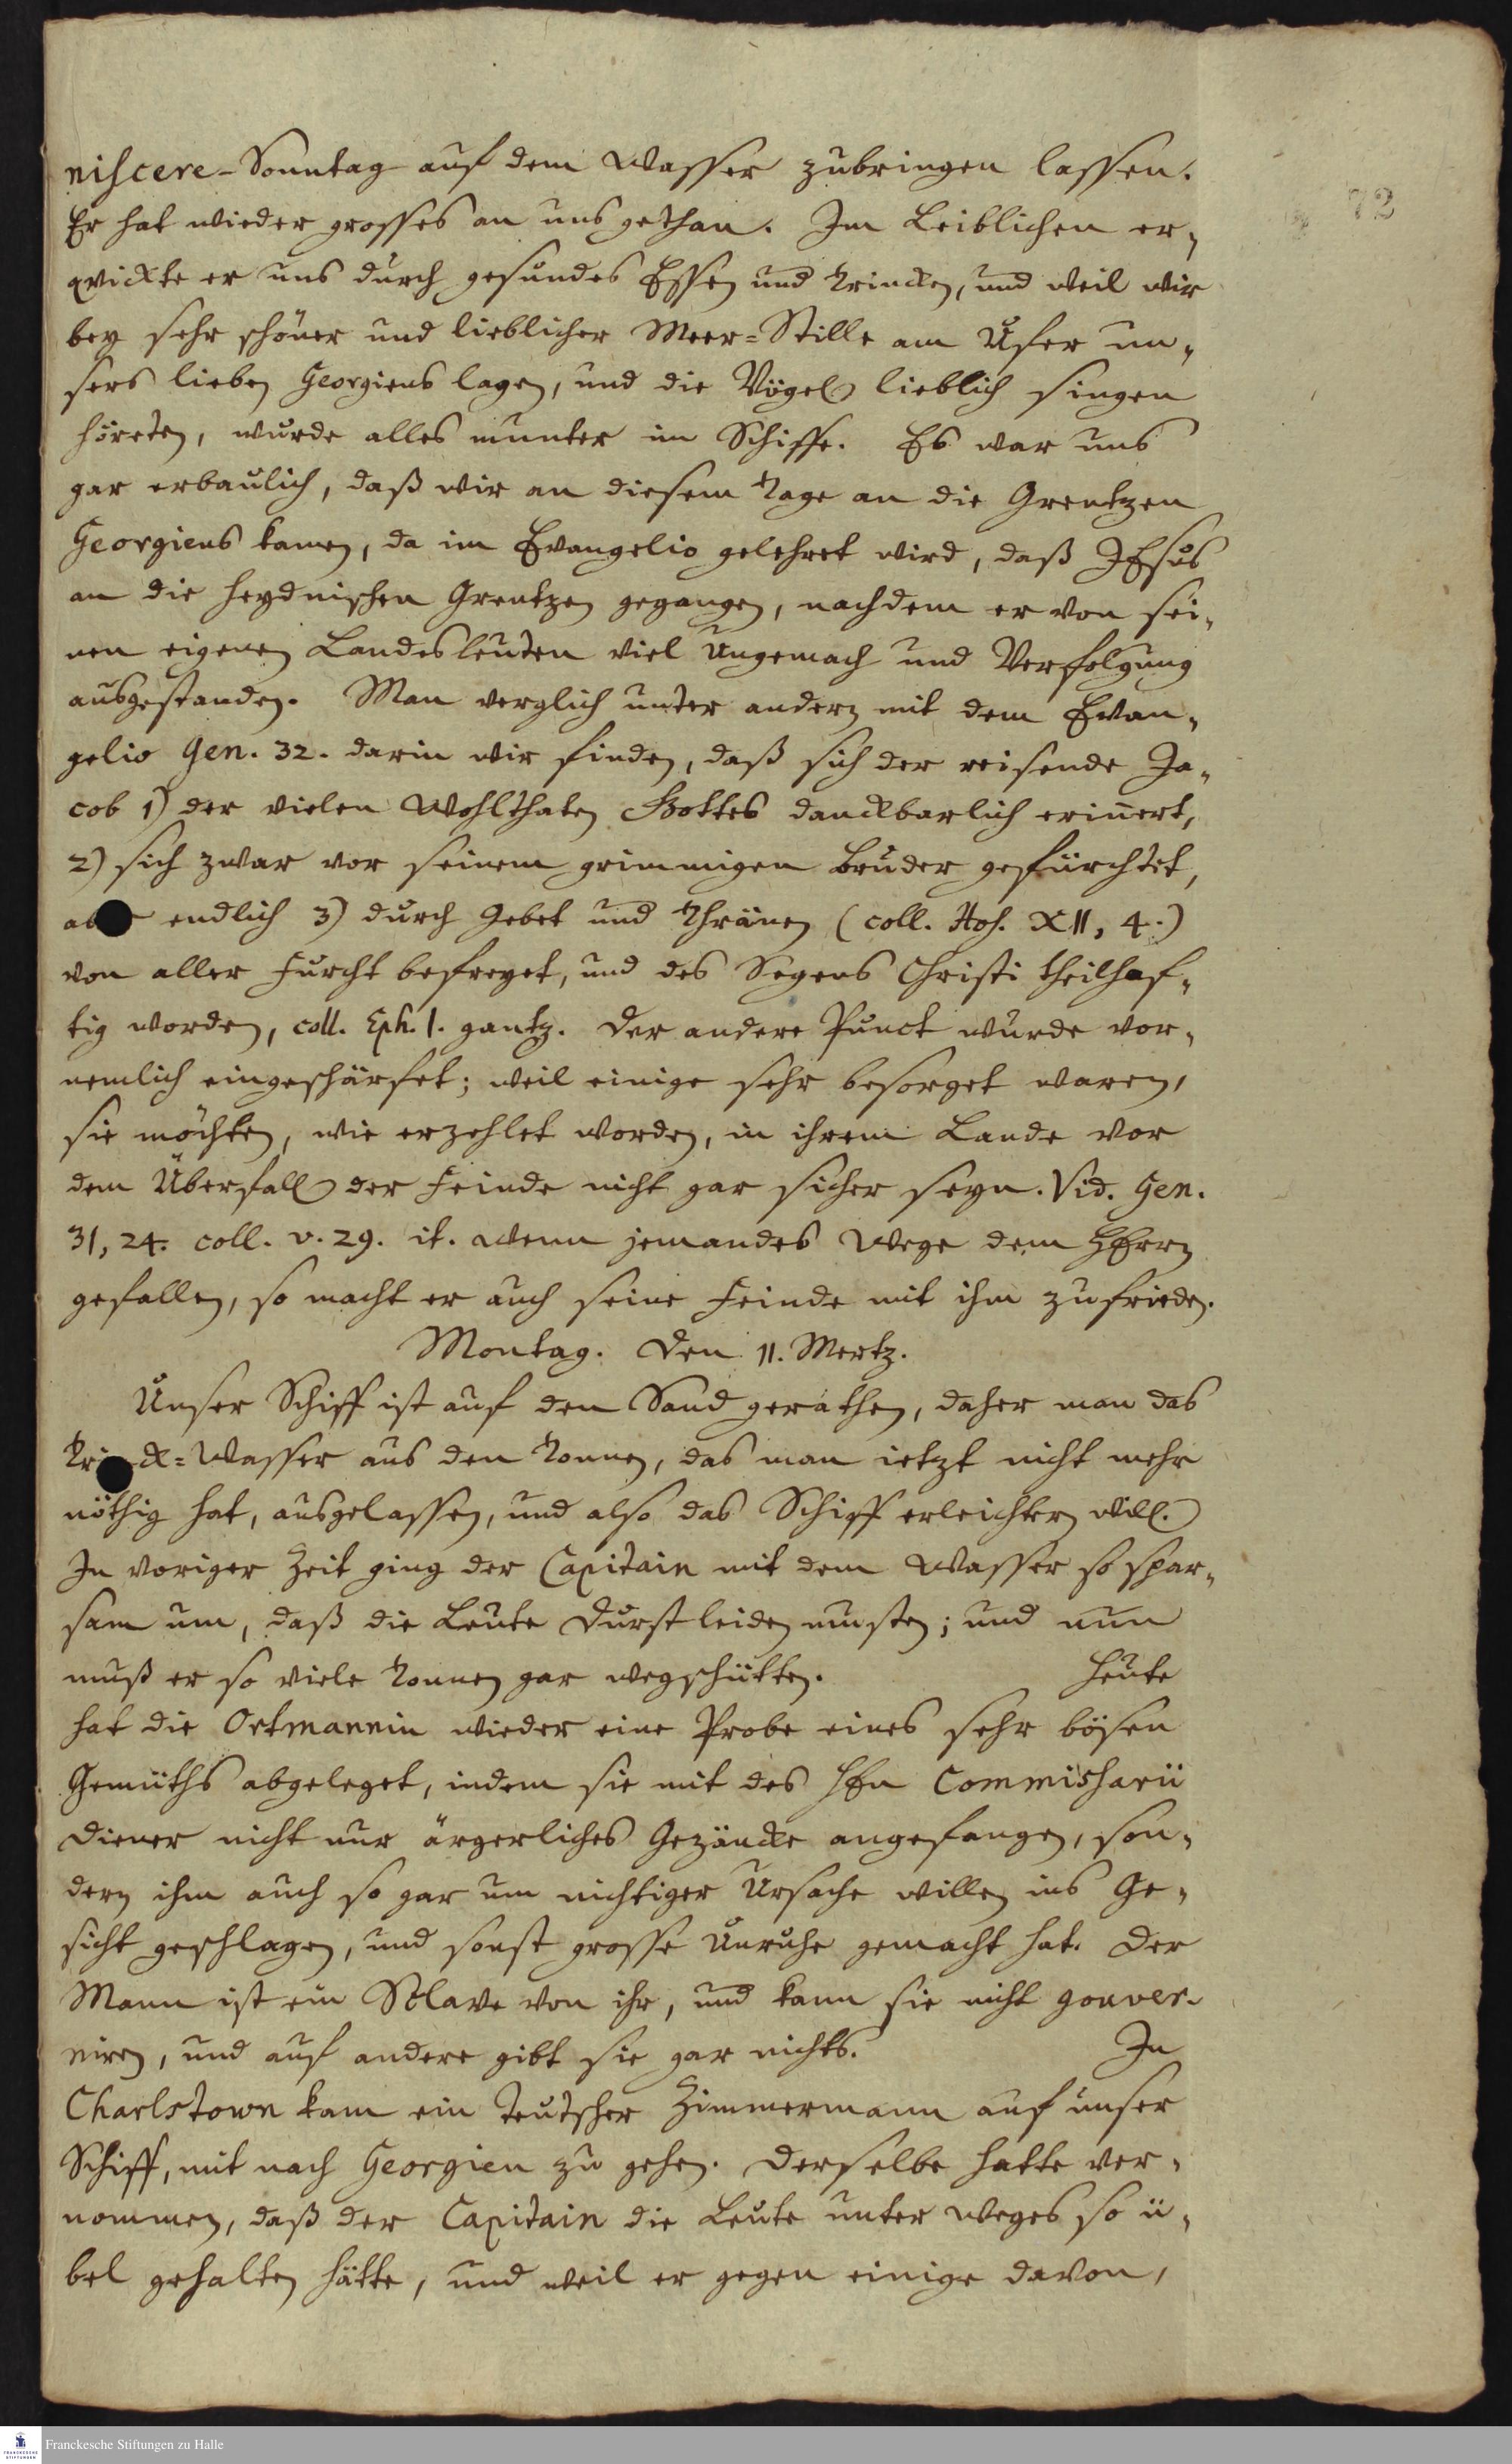 72
niscere-Sonntag auf dem Wasser zubringen lassen.
Er hat wieder grosses an uns gethan. Im Leiblichen er-
qvickte er uns durch gesundes Essen und Trincken, und weil wir
bey sehr schöner und lieblicher Meer-Stille am Ufer un-
sers lieben Georgiens lagen, und die Vögel lieblich singen
höreten, wurde alles munter im Schiffe. Es war uns
gar erbaulich, daß wir an diesem Tage an die Grentzen
Georgiens kamen, da im Evangelio gelehret wird, daß JEsus
an die heydnischen Grentzen gegangen, nachdem er von sei-
nen eigenen Landesleuten viel Ungemach und Verfolgung
ausgestanden. Man verglich unter andern mit dem Evan-
gelio Gen. 32. darin wir finden, daß sich der reisende Ja-
cob 1) der vielen Wohlthaten Gottes danckbarlich erinert,
2) sich zwar vor seinem grimmigen Bruder gefürchtet,
endlich 3) durch Gebet und Thränen (coll. Hos. XII, 4.)
von aller Furcht befreyet, und des Segens Christi theilhaf-
tig worden, coll. Eph. 1. gantz. Der andere Punct wurde vor-
nemlich eingeschärfet; weil einige sehr besorget waren,
sie möchten, wie erzehlet worden, in ihrem Lande vor
dem Überfall der Feinde nicht gar sicher seyn. Vid. Gen.
31, 24. coll. v. 29. it. wenn jemandes Wege dem HErrn
gefallen, so macht er auch seine Feinde mit ihm zufrieden.
Montag. Den 11. Mertz.
Unser Schiff ist auf den Sand gerathen, daher man das
Wasser aus den Tonnen, das man ietzt nicht mehr
nöthig hat, ausgelassen, und also das Schiff erleichtern will.
In voriger Zeit ging der Capitain mit dem Wasser so spar-
sam um, daß die Leute Durst leiden musten; und nun
muß er so viele Tonnen gar wegschütten. Heute
hat die Ortmannin wieder eine Probe eines sehr bösen
Gemüths abgeleget, indem sie mit des HEn Commissarii
Diener nicht nur ärgerliches Gezäncke angefangen, son-
dern ihm auch so gar um nichtiger Ursache willen ins Ge-
sicht geschlagen, und sonst grosse Unruhe gemacht hat. Der
Mann ist ein Sclave von ihr, und kann sie nicht gouver-
niren, und auf andere gibt sie gar nichts. In
Charlstown kam ein teutscher Zimmermann auf unser
Schiff, mit nach Georgien zu gehen. Derselbe hatte ver-
nommen, daß der Capitain die Leute unter weges so ü-
bel gehalten hätte, und weil er gegen einige davon,
Franckesche Stiftungen zu Halle